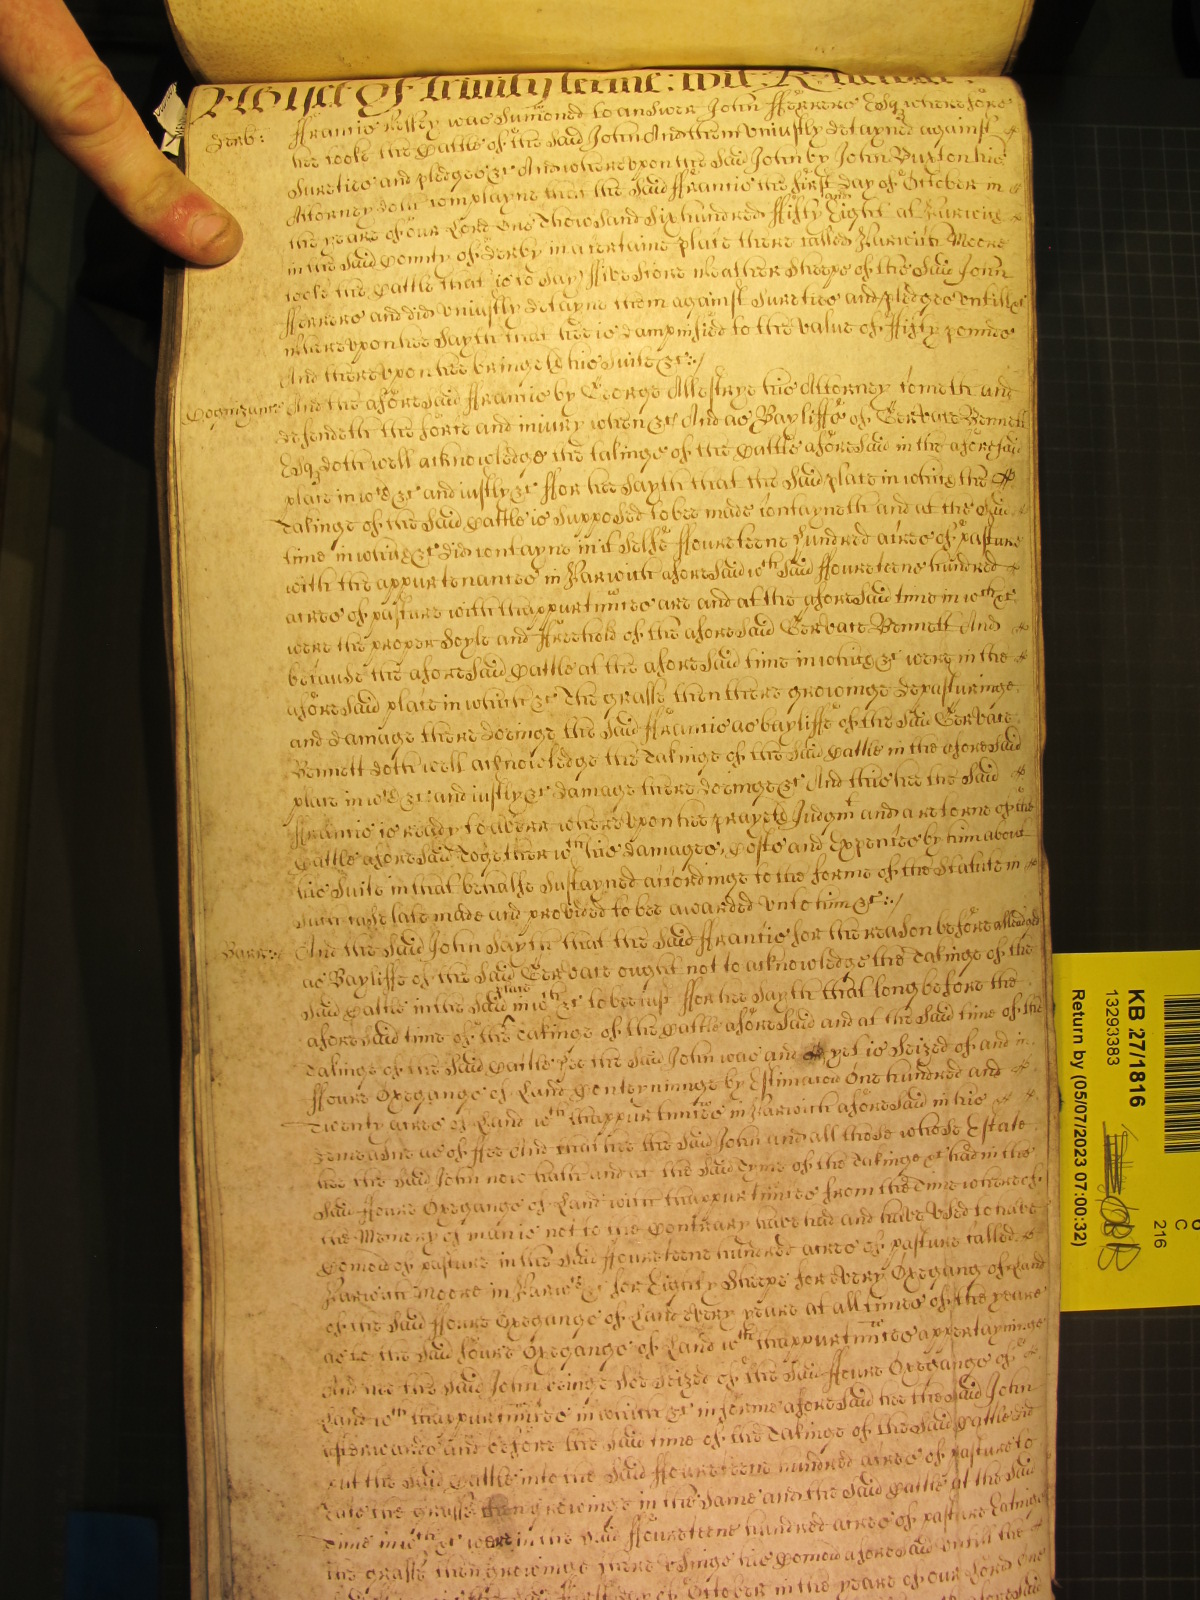 As yet Of Trinity terme: wit: R
Derb: ffrancis was Sumoned to answer John fferrers Esqr wherefore
hee tooke the Cattle of the said John And them uniustly detayned against
Sureties and pledges &c And whereupon the said John by John Buxton his
Attorney doth complayne that the said ffrancis the first day of October in
the yeare of our Lord One Thousand Six hundred ffifty and Eight at Parwich
in the said County of Derby in a certaine place there called Parwich Moore
tooke the Cattle that is to say ffive score Weather Sheepe of the said John
fferrers and did uniustly detayne them against Sureties and pledges untill &c
whereupon hee sayth that hee is dampnified to the value of ffifty pounds
And thereupon hee bringeth his Suite &c:/
Cognizance And the aforesaid ffrancis by George Allestrye his Attorney cometh and
defendeth the force and iniury when &c And as Bayliffe of Gervase Bennett
Esqr doth well acknowledge the takinge of the Cattle aforesaid in the aforesaid
place in wch &c and iustly &c ffor hee sayth that the said place in which the
Takinge of the said Cattle is supposed to bee made contayneth and at the said
time in which &c did contayne in it selfe ffoureteene hundred acres of pasture
with the appurtenances in Parwich aforesaid wch said ffoureteene hundred
acres of pasture with thappurtnnces are and at the aforesaid time in wch &c
were the proper Soyle and ffreehold of the aforesaid Gervase Bennett And
because the aforesaid Cattle at the aforesaid time in which &c were in the
aforesaid place in which &c The grasse then there growinge depasturinge
and damage there doeinge the said ffrancis as bayliffe of the said Gervase
Bennett doth well acknowledge the Takinge of the said Cattle in the aforesaid
place in wch &c and iustly &c damage there doeinge &c And this hee the said
ffrancis is ready to averr whereupon hee prayeth Judgmt and a retorne of the
Cattle aforesaid Together wth his damages, Costs and Expences by him about
his Suite in that behalfe Sustayned accordinge to the forme of the Statute in
such case late made and provided to bee awarded unto him &c:/
Barre: And the said John sayth that the said ffrancis for the reason before alleadged
as Bayliffe of the said Gervase ought not to acknowledge the Takinge of the
said Cattle in the said place in wch &c to bee iust ffor hee sayth that long before the
aforesaid time of the Takinge of the Cattle aforesaid and at the said time of the
Takinge of the said Cattle hee the said John was and yet is seized of and in
ffoure Oxegange of Land Conteyninge by Estimacon One hundred and
Twenty acres of Land wth thappurtnnces in Parwich aforesaid in his
Demeasne as of ffee And that hee the said John and all those whose Estate
hee the said John now hath and at the said Tyme of the Takinge &c had in the
said ffoure Oxegange of Land with thappurtnnces from the Time whereof
the Memory of man is not to the Contrary have had and have used to have
Comon of pasture in the said ffoureteene hundred acres of pasture called
Parwich Moore in Parwch &c for Eighty Sheepe for every Oxegang of Land
of the said ffoure Oxegange of Land every yeare at all times of the yeare
as to the said ffoure Oxegange of Land wth thappurtnnces appertayninge
And hee the said John beinge soe seized of the said ffoure Oxegange of
Land wth thappurtnnces in which &c in forme aforesaid hee the said John
afterwards and before the said time of the Takinge of the said Cattle did
put the said Cattle into the said ffoureteene hundred acres of pasture to
Eate the grasse then growinge in the same and the said Cattle at the said
Time in wch &c were in the said ffoureteene hundred acres of pasture Eatinge
the grasse then growinge there usinge his Comon aforesaid untill the
first day of October in the yeare of our Lord One
KB 27/1816
13293383
Return by (05/07/2023 07:00:32)
C
216